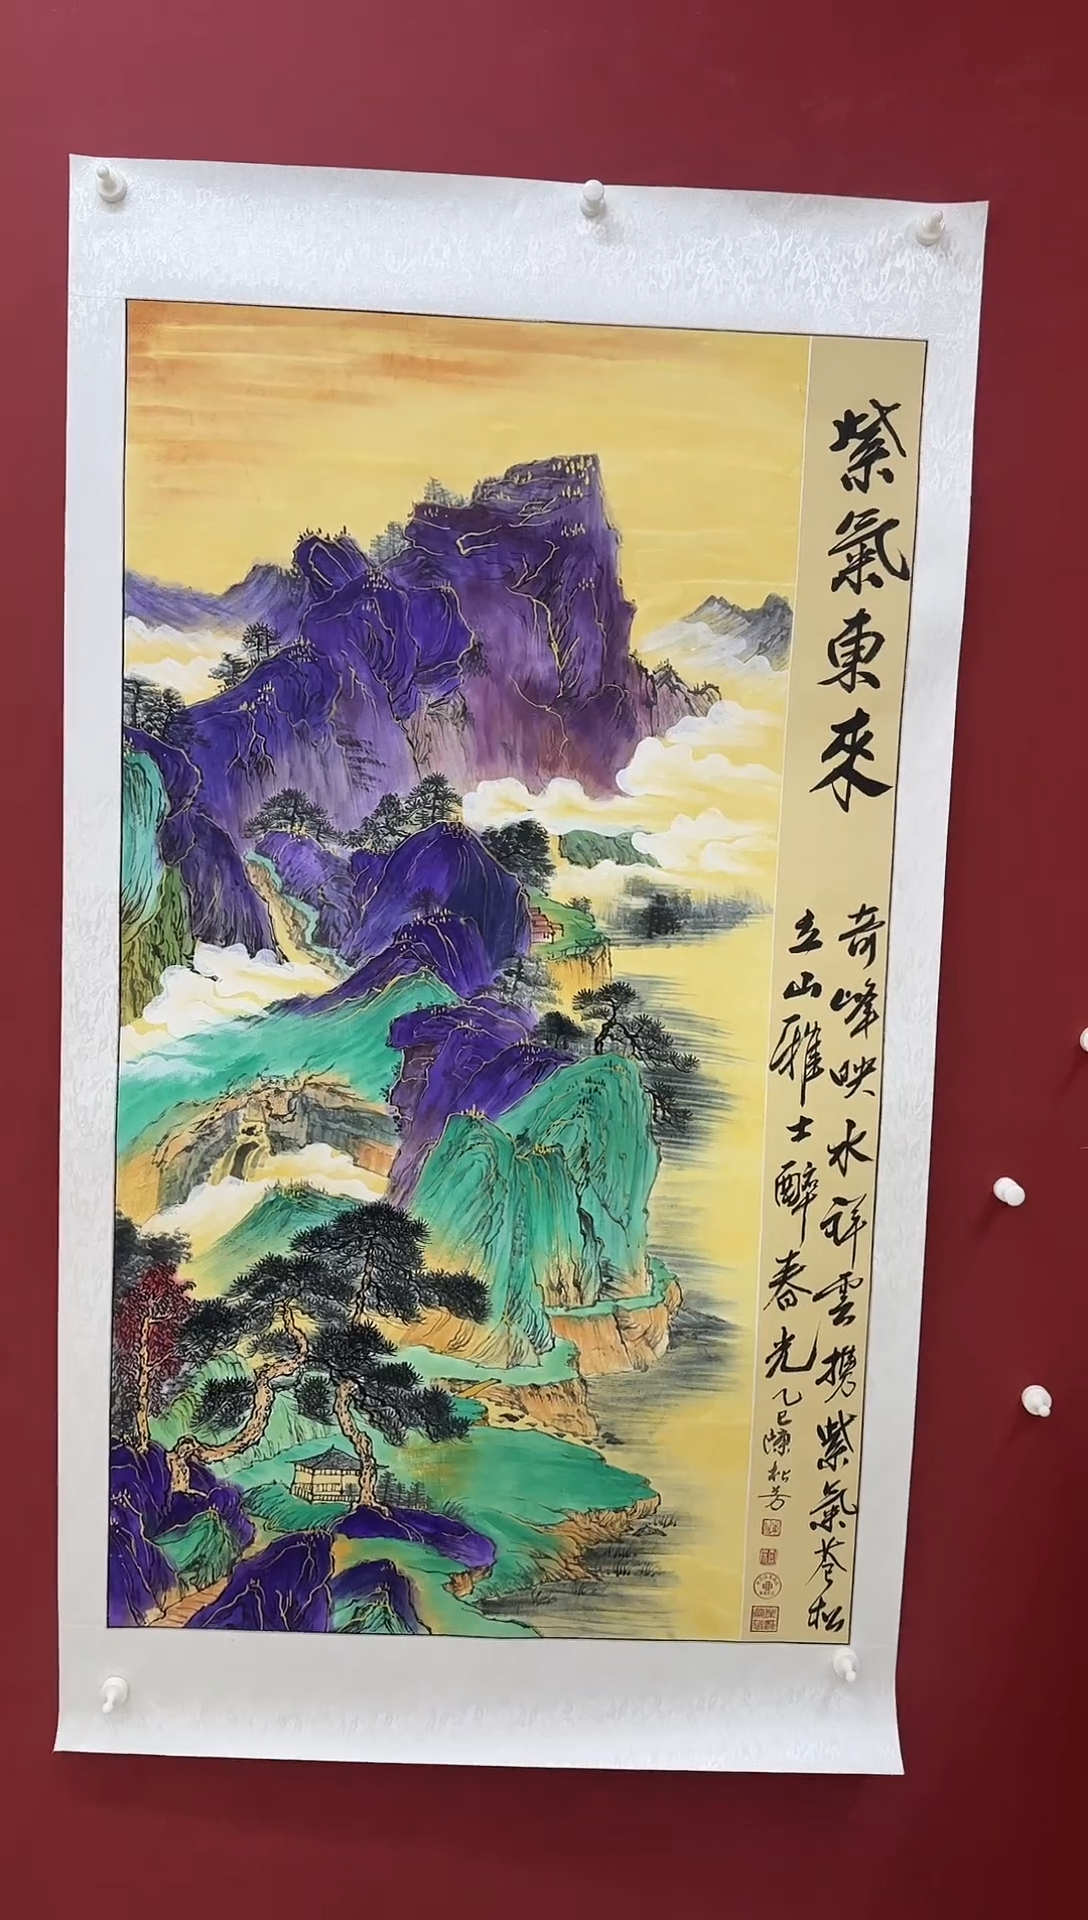 紫氣東來
奇峰映水祥雲攜紫氣蒼松
立山雅士醉春光乙巳陳松芳